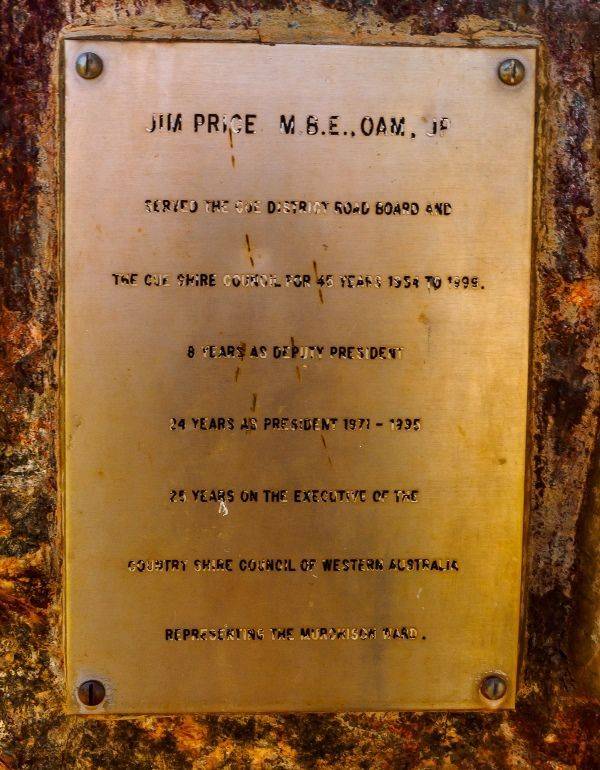 JIM PRICE M.B.E., OAM, JP
SERVED THE CUE DISTRICT ROAD BOARD AND
THE CUE SHIRE COUNCIL FOR 45 YEARS 1954 TO 1999.
8 YEARS AS DEPUTY PRESIDENT
24 YEARS AS PRESIDENT 1971 - 1995
25 YEARS ON THE EXECUTIVE OF THE
COUNTRY SHIRE COUNCIL OF WESTERN AUSTRALIA
REPRESENTING THE MURCHISON WARD.